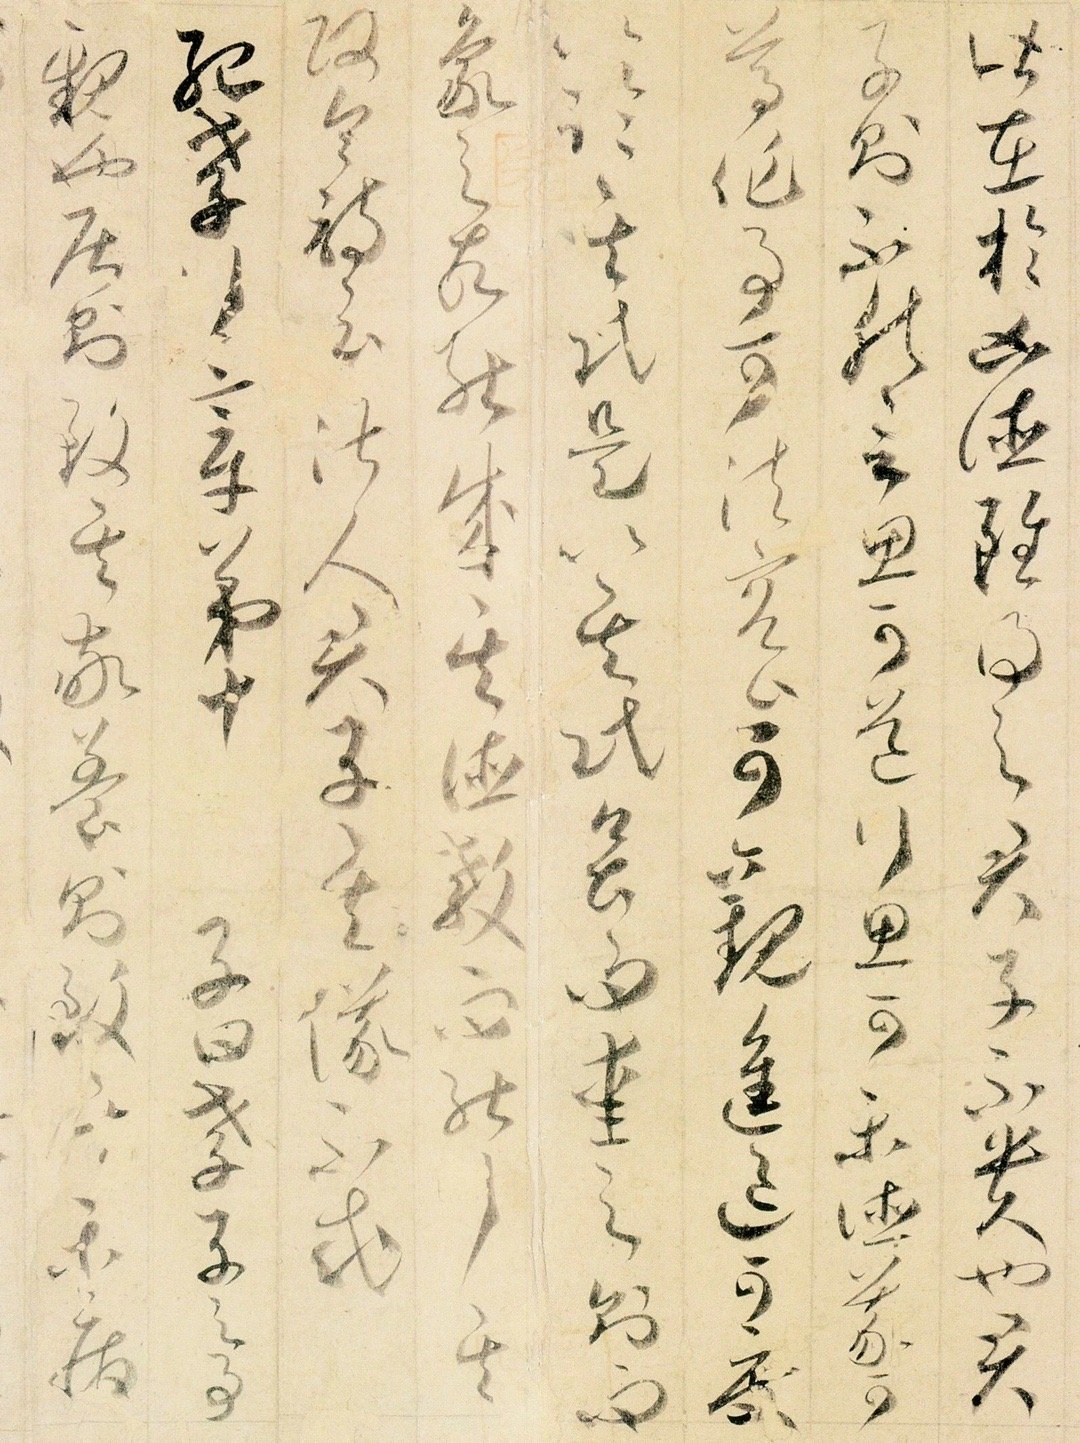 皆在於凶德雖得之君子不貴也君
子則不然言思可道行思可樂德義可
尊作事可法容止可觀進退可度
以臨其民是以其民畏而愛之則而
象之故能成其德教而能行其
政令詩云淑人君子其儀不忒
紀孝行章第十 子曰孝子之事
親也居則致其敬養則致其樂病